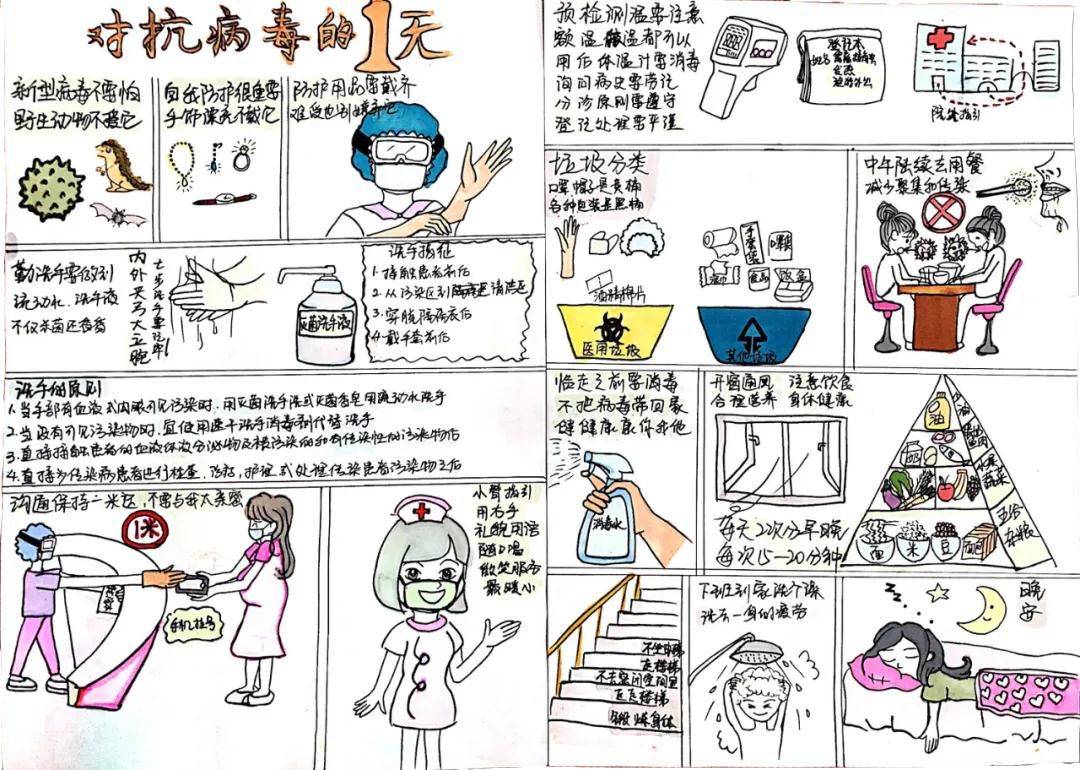 对抗病毒的1天
新型病毒不要怕
野生动物不惹它
自我防护很重要
手饰漂亮不戴它
防护用品要戴齐
难受也别嫌弃它
勤洗手要做到
流动水、洗手液
不仅杀菌还香香
内外夹弓大立腕
七步洗手要记牢!
灭菌洗手液
洗手指征
1.接触患者前后
2.从污染区到清洁区
3.穿脱隔离衣后
4.戴手套前后
洗手的原则
1.当手部有血液或肉眼可见污染时,用灭菌洗手液或灭菌香皂用流动水洗手
2.当没有可见污染物时,宜使用速干洗手消毒剂代替洗手
3.直接接触患者的血液体液分泌物及被污染的和有传染性的污染物后
4.直接为传染病患者进行检查、治疗,护理或处理传染患者污染物之后
沟通保持一米远,不要与我太亲密
1米
手机挂号
小臂指引
用右手
礼貌用语
随口唱
微笑服务
最暖心
预检测温要注意
额温 都可以
用后体温计要消毒
询问病史要劳记
分诊原则要遵守
登记处理要平谨
登记本
姓名
院外指引
垃圾分类
口罩帽子是黄桶
各种包装是黑桶
酒精棉片
医用垃圾
手套袋
口罩袋
食品
饭盒
其他垃圾
中午陆续去用餐
减少聚集和传染
临走之前要消毒
不把病毒带回家
健健康康你我他
消毒水
开窗通风 注意饮食
合理营养 身体健康
每天2次分早晚
每次15-20分钟
油
奶
水果
蔬菜
面
米
豆
五谷
杂粮
不坐电梯
走楼梯
不去密闭空间里
走走楼梯
锻炼身体
下班到家洗个澡
洗去一身的疲劳
晚安
zzz